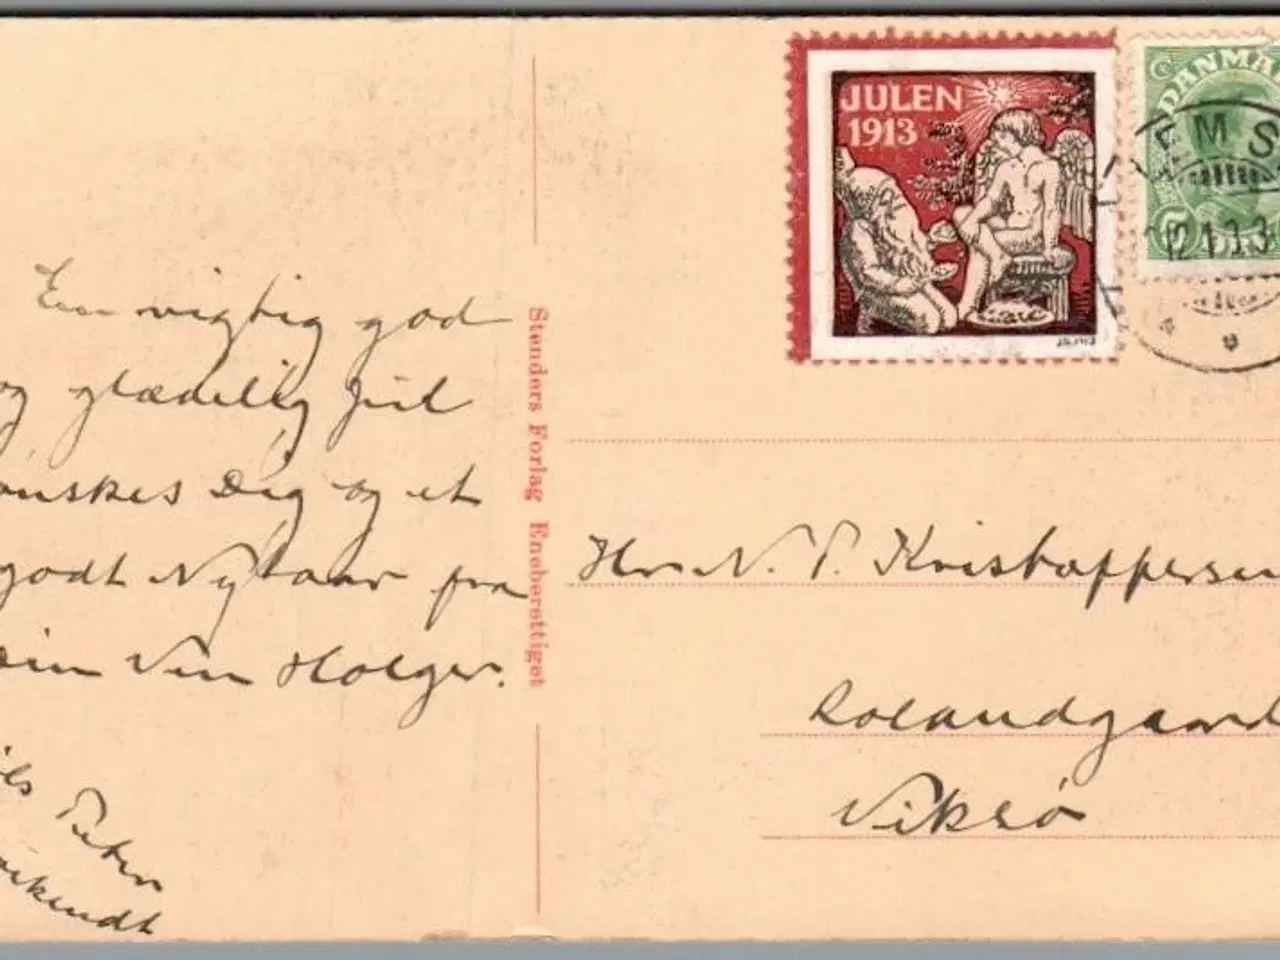 JULEN
1913
DANMA
EMS
En rigtig god
og glædelig Jul
ønskes Dig og et
godt Nytaar fra
Din Ven Holger.
Stenders Forlag Eneberettiget
Hr. N. P. Kristoffersen
Rolandgaard
Viksø